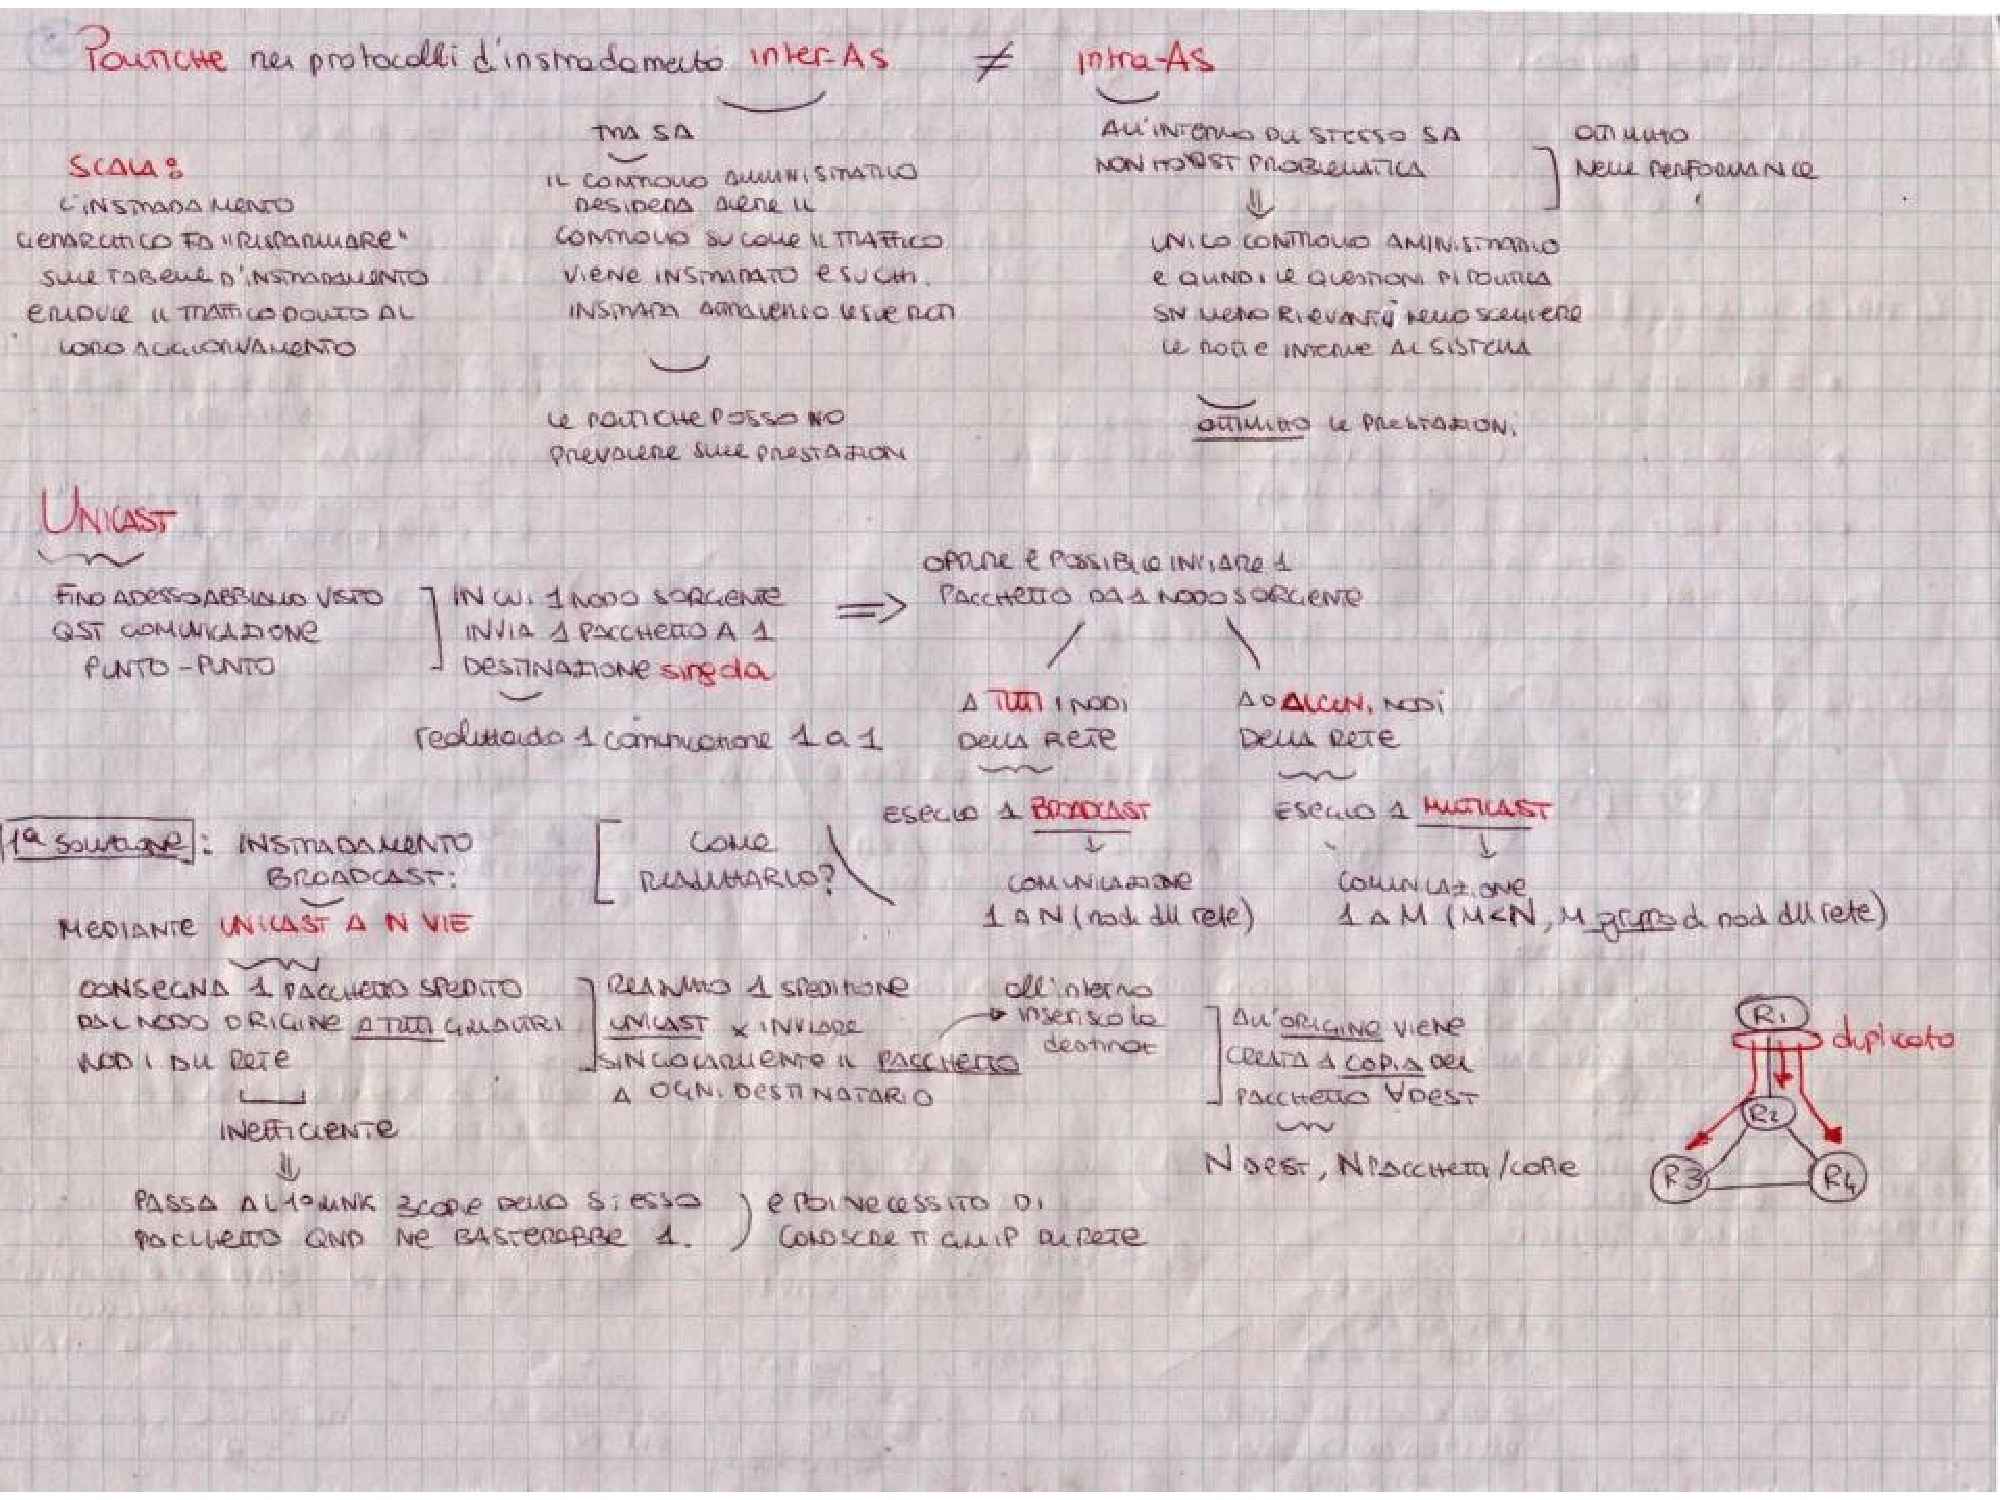 POLITICHE nei protocolli d'instradamento inter-AS ≠ intra-AS
SCALA:
L'INSTRADAMENTO
GERARCHICO FA "RISPARMIARE"
SULLE TABELLE D'INSTRADAMENTO
E RIDUCE IL TRAFFICO DOVUTO AL
LORO AGGIORNAMENTO
TRA SA
IL CONTROLLO AMMINISTRATIVO
DESIDERA AVERE IL
CONTROLLO SU COME IL TRAFFICO
VIENE INSTRADATO E SU CHI
INSTRADA ATTRAVERSO LE SUE RETI
LE POLITICHE POSSONO
PREVALERE SULLE PRESTAZIONI
ALL'INTERNO DLL STESSO SA
NON HO QST PROBLEMATICA
OTTIMIZZO
NELLE PERFORMANCE
UNICO CONTROLLO AMINISTRATIVO
E QUINDI LE QUESTIONI DI POLITICA
SN MENO RILEVANTI NELLO SCEGLIERE
LE ROTTE INTERNE AL SISTEMA
OTTIMIZZO LE PRESTAZIONI
UNICAST
FINO ADESSO ABBIAMO VISTO
QST COMUNICAZIONE
PUNTO-PUNTO
IN CUI 1 NODO SORGENTE
INVIA 1 PACCHETTO A 1
DESTINAZIONE singola
realizzando 1 comunicazione 1 a 1
OPPURE È POSSIBILE INVIARE 1
PACCHETTO DA 1 NODO SORGENTE
A TUTTI I NODI
DELLA RETE
AD ALCUNI NODI
DELLA RETE
ESEGUO 1 BROADCAST
ESEGUO 1 MULTICAST
COMUNICAZIONE
1 A N (nodi dll rete)
COMUNICAZIONE
1 A M (M<N, M gruppo di nodi dll rete)
COME
REALIZZARLO?
1ª soluzione: INSTRADAMENTO
BROADCAST:
MEDIANTE UNICAST A N VIE
CONSEGNA 1 PACCHETTO SPEDITO
DAL NODO ORIGINE A TUTTI GLI ALTRI
NODI DLL RETE
INEFFICIENTE
PASSA AL 1° LINK 3 COPIE DELLO STESSO
PACCHETTO QND NE BASTEREBBE 1.
E POI NECESSITO DI
CONOSCERE TT GLI IP DLL RETE
REALIZZO 1 SPEDIZIONE
UNICAST x INVIARE
SINGOLARMENTE IL PACCHETTO
A OGNI DESTINATARIO
all'interno
inserisco la
destinaz
ALL'ORIGINE VIENE
CREATA 1 COPIA DEL
PACCHETTO ∀ DEST
N DEST, N PACCHETTI/COPIE
R1
duplicato
R2
R3
R4